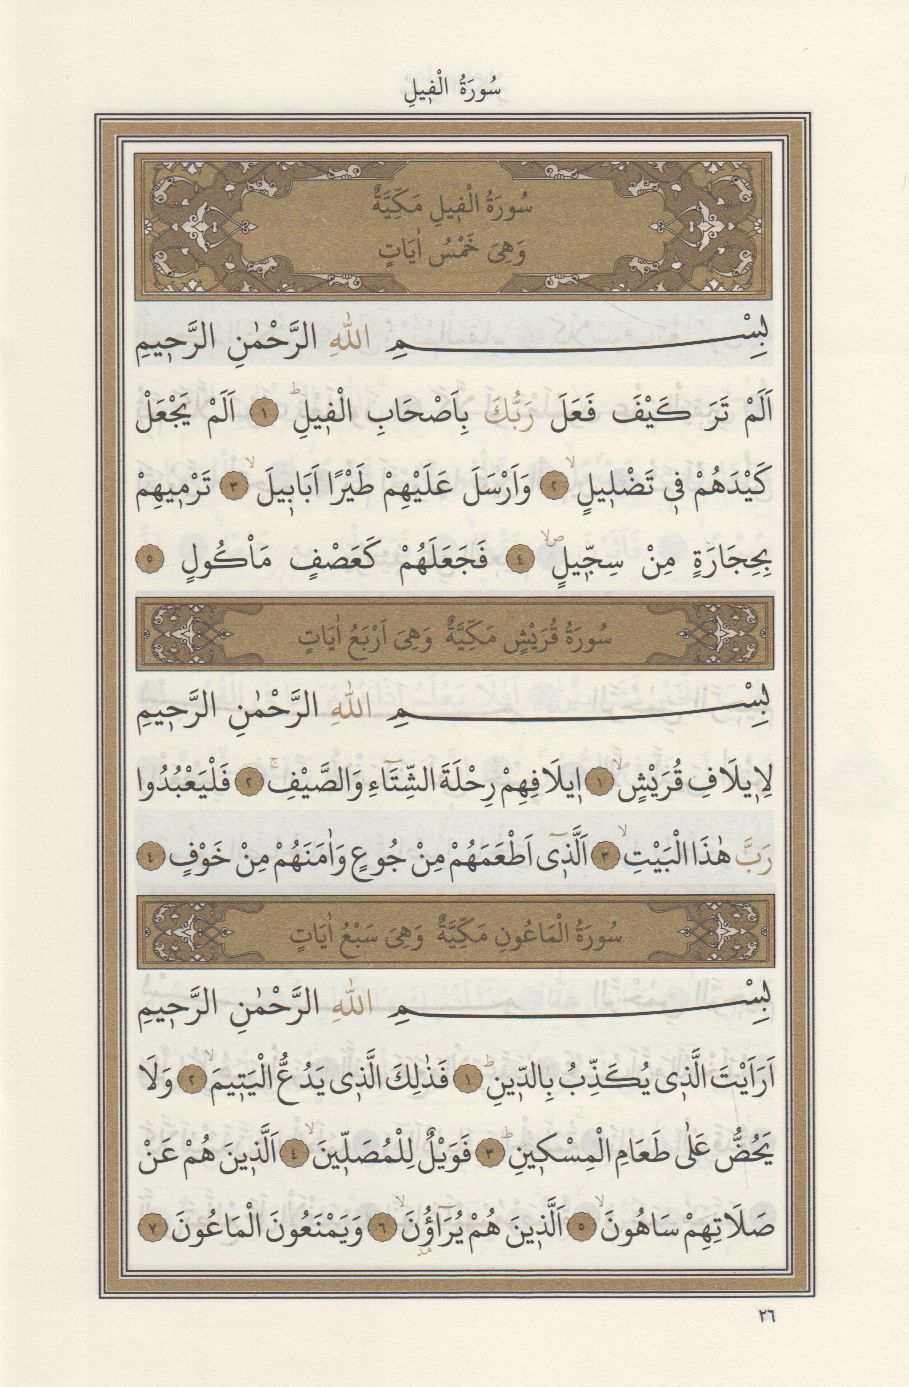 سُورَةُ الْفٖيلِ
سُورَةُ الْفٖيلِ مَكِّيَّةٌ
وَهِىَ خَمْسُ اٰيَاتٍ
بِسْمِ اللّٰهِ الرَّحْمٰنِ الرَّحٖيمِ
اَلَمْ تَرَ كَيْفَ فَعَلَ رَبُّكَ بِاَصْحَابِ الْفٖيلِؕ ١ اَلَمْ يَجْعَلْ
كَيْدَهُمْ فٖى تَضْلٖيلٍۙ ٢ وَاَرْسَلَ عَلَيْهِمْ طَيْرًا اَبَابٖيلَۙ ٣ تَرْمٖيهِمْ
بِحِجَارَةٍ مِنْ سِجّٖيلٍۙۖ ٤ فَجَعَلَهُمْ كَعَصْفٍ مَاْكُولٍ ٥
سُورَةُ قُرَيْشٍ مَكِّيَّةٌ وَهِىَ اَرْبَعُ اٰيَاتٍ
بِسْمِ اللّٰهِ الرَّحْمٰنِ الرَّحٖيمِ
لِاٖيلَافِ قُرَيْشٍۙ ١ اٖيلَافِهِمْ رِحْلَةَ الشِّتَٓاءِ وَالصَّيْفِۚ ٢ فَلْيَعْبُدُوا
رَبَّ هٰذَا الْبَيْتِۙ ٣ اَلَّذٖٓى اَطْعَمَهُمْ مِنْ جُوعٍ وَاٰمَنَهُمْ مِنْ خَوْفٍ ٤
سُورَةُ الْمَاعُونِ مَكِّيَّةٌ وَهِىَ سَبْعُ اٰيَاتٍ
بِسْمِ اللّٰهِ الرَّحْمٰنِ الرَّحٖيمِ
اَرَاَيْتَ الَّذٖى يُكَذِّبُ بِالدّٖينِؕ ١ فَذٰلِكَ الَّذٖى يَدُعُّ الْيَتٖيمَۙ ٢ وَلَا
يَحُضُّ عَلٰى طَعَامِ الْمِسْكٖينِؕ ٣ فَوَيْلٌ لِلْمُصَلّٖينَۙ ٤ اَلَّذٖينَ هُمْ عَنْ
صَلَاتِهِمْ سَاهُونَۙ ٥ اَلَّذٖينَ هُمْ يُرَٓاؤُ۫نَۙ ٦ وَيَمْنَعُونَ الْمَاعُونَ ٧
٢٦